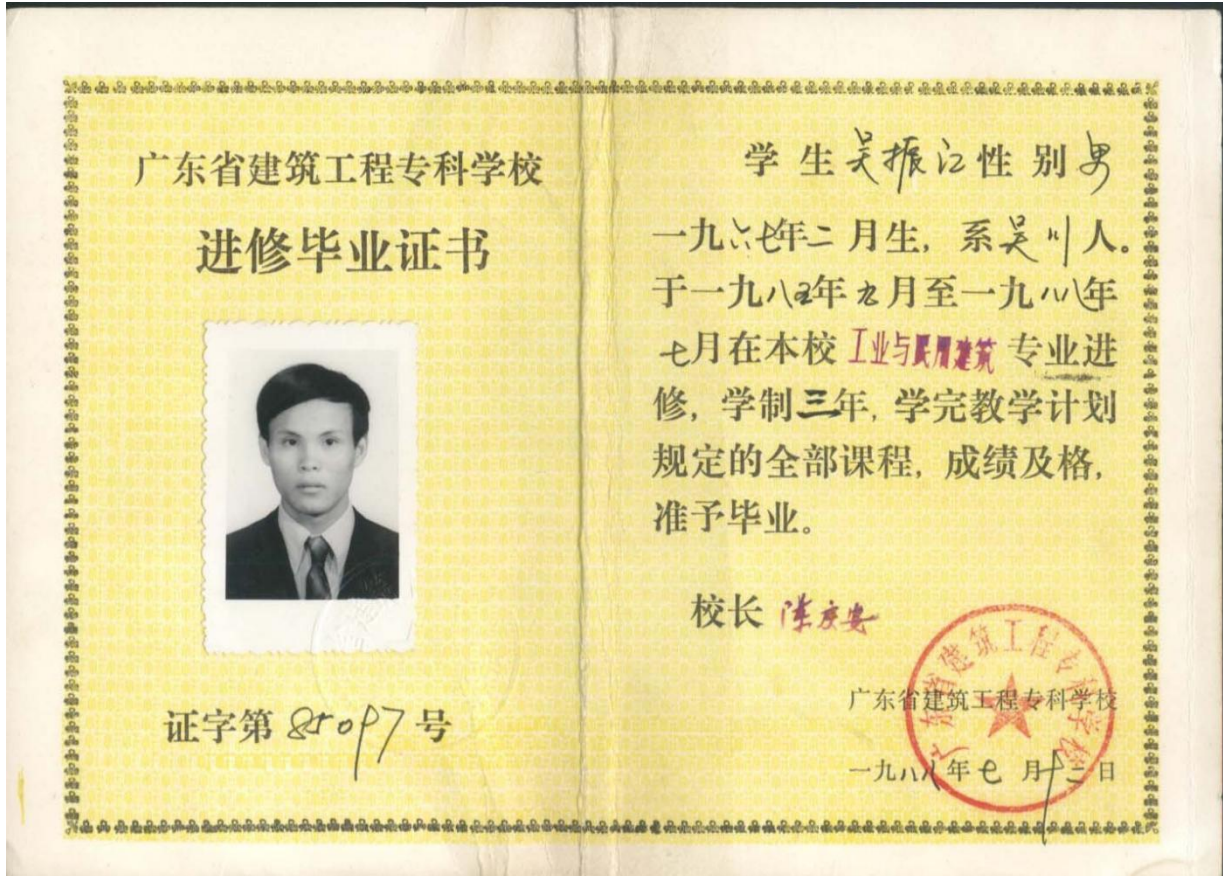 广东省建筑工程专科学校
进修毕业证书
证字第 85097 号
学生吴振江性别男
一九六七年二月生，系吴川人。
于一九八五年九月至一九八八年
七月在本校 工业与民用建筑 专业进
修，学制三年，学完教学计划
规定的全部课程，成绩及格，
准予毕业。
校长
广东省建筑工程专科学校
广东省建筑工程专科学校
一九八八年七月十二日